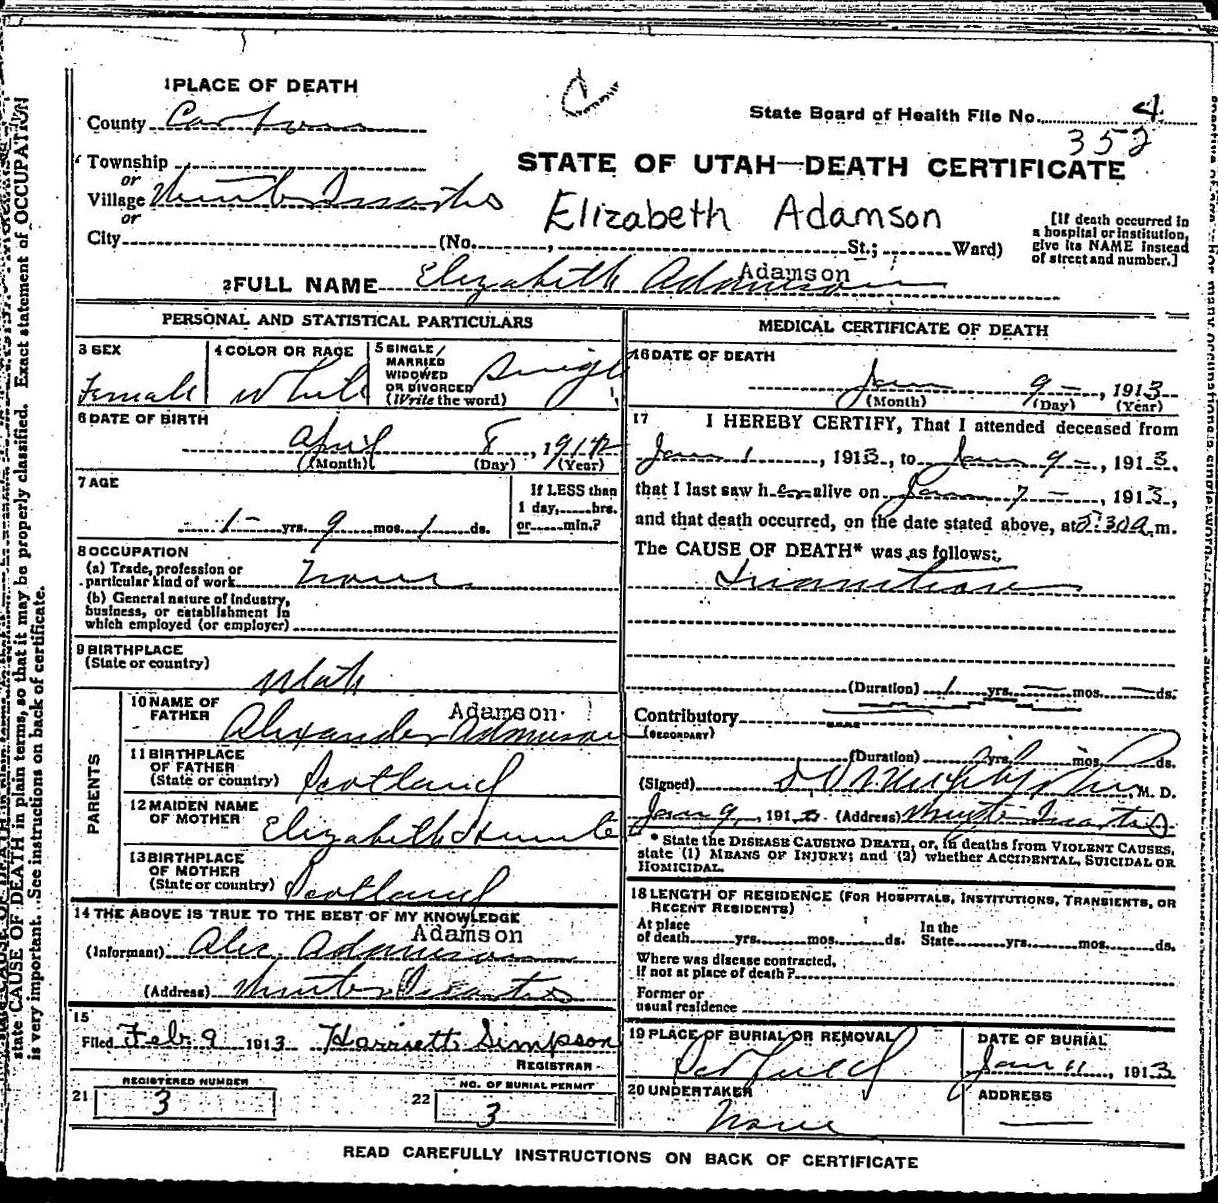 1 PLACE OF DEATH
County Carbon
State Board of Health File No. 4
352
Township
or
Village Winter Quarters
or
STATE OF UTAH—DEATH CERTIFICATE
Elizabeth Adamson
City (No. , St.; Ward)
[If death occurred in
a hospital or institution,
give its NAME instead
of street and number.]
Adamson
2 FULL NAME Elizabeth Adamson
PERSONAL AND STATISTICAL PARTICULARS
3 SEX
Female
4 COLOR OR RACE
White
5 SINGLE,
MARRIED
WIDOWED
OR DIVORCED
(Write the word)
Single
6 DATE OF BIRTH
April 8, 191
(Month) (Day) (Year)
7 AGE
1 yrs. 9 mos. 1 ds.
If LESS than
1 day, hrs.
or min.?
8 OCCUPATION
(a) Trade, profession or
particular kind of work None
(b) General nature of industry,
business, or establishment in
which employed (or employer)
9 BIRTHPLACE
(State or country)
Utah
PARENTS
10 NAME OF
FATHER
Adamson
Alexander Adamson
11 BIRTHPLACE
OF FATHER
(State or country) Scotland
12 MAIDEN NAME
OF MOTHER
Elizabeth
13 BIRTHPLACE
OF MOTHER
(State or country) Scotland
14 THE ABOVE IS TRUE TO THE BEST OF MY KNOWLEDGE
Adamson
(Informant) Alec Adamson
(Address) Winter Quarters
15
Filed Feb 9 1913 Harriett Simpson
REGISTRAR
REGISTERED NUMBER
21 3
NO. OF BURIAL PERMIT
22 3
MEDICAL CERTIFICATE OF DEATH
16 DATE OF DEATH
Jan 9 , 1913
(Month) (Day) (Year)
17 I HEREBY CERTIFY, That I attended deceased from
Jan 1 , 1913, to Jan 9 , 1913,
that I last saw her alive on Jan 7 , 1913,
and that death occurred, on the date stated above, at 5:30 a.m.
The CAUSE OF DEATH* was as follows:
Inanition
(Duration) 1 yrs. mos. ds.
Contributory
(SECONDARY)
(Duration) yrs. mos. ds.
(Signed) M. D.
Jan 9, 191 (Address) Winter Quarters
* State the DISEASE CAUSING DEATH, or, in deaths from VIOLENT CAUSES,
state (1) MEANS OF INJURY; and (2) whether ACCIDENTAL, SUICIDAL OR
HOMICIDAL.
18 LENGTH OF RESIDENCE (FOR HOSPITALS, INSTITUTIONS, TRANSIENTS, OR
RECENT RESIDENTS)
At place
of death yrs. mos. ds.
In the
State yrs. mos. ds.
Where was disease contracted,
if not at place of death?
Former or
usual residence
19 PLACE OF BURIAL OR REMOVAL
Scofield
DATE OF BURIAL
Jan 11, 1913
20 UNDERTAKER
None
ADDRESS
READ CAREFULLY INSTRUCTIONS ON BACK OF CERTIFICATE
state CAUSE OF DEATH in plain terms, so that it may be properly classified. Exact statement of OCCUPATION
is very important. See instructions on back of certificate.